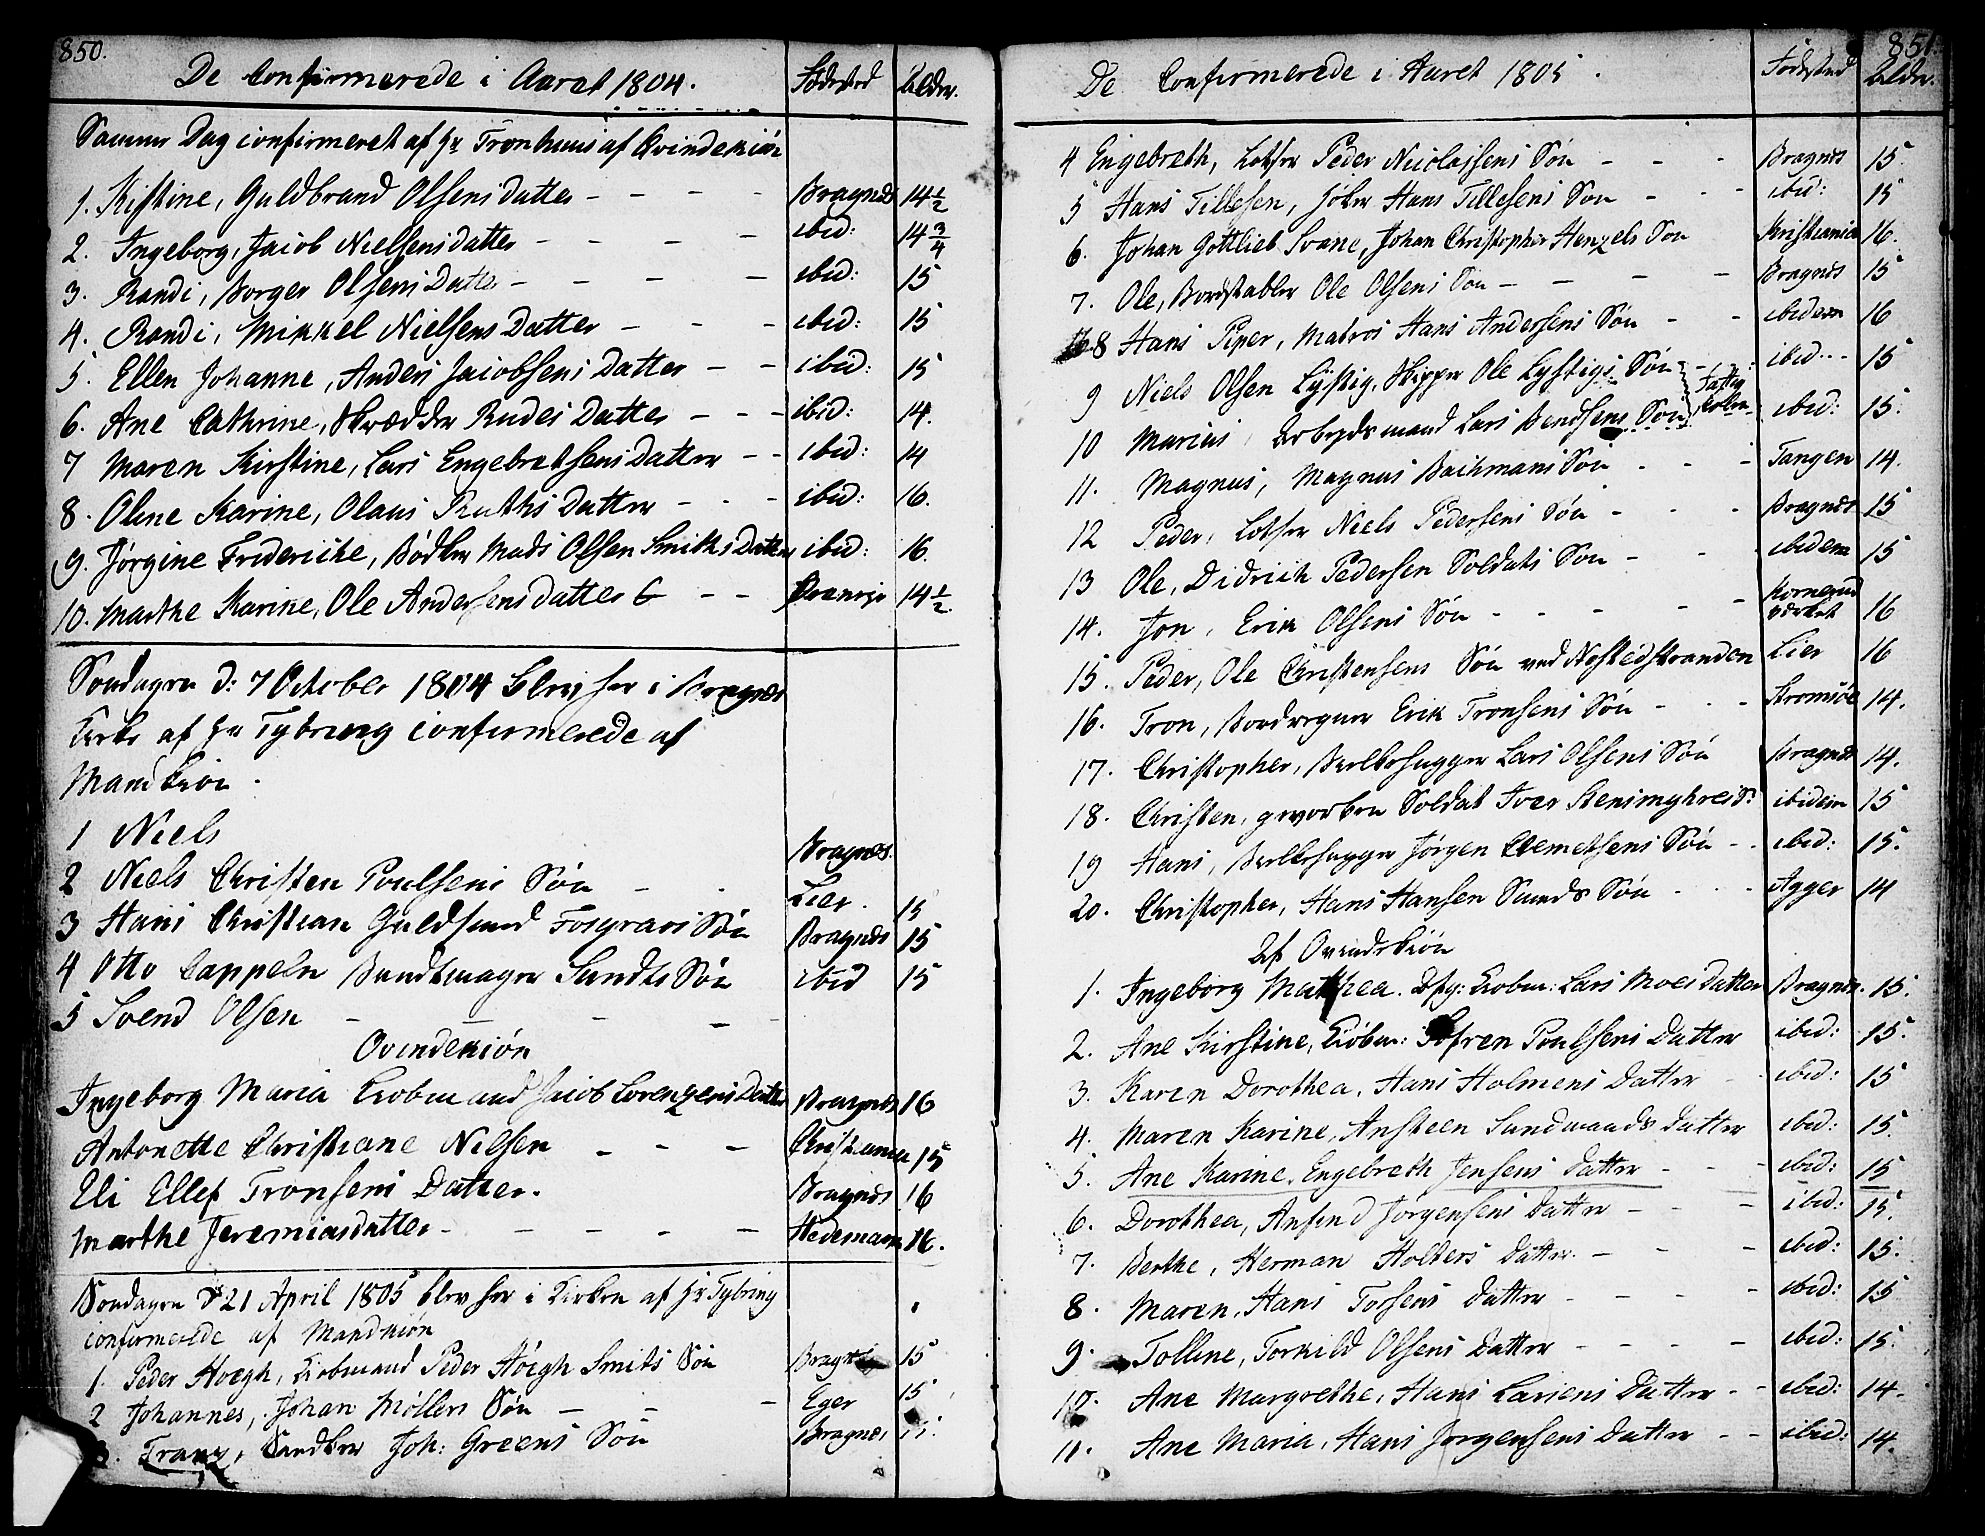 850.
De Confirmerede i Aaret 1804. Fødested Alder.
Samme Dag confirmeret af Hr Tronhuus af Qvindekiön
1. Kistine, Guldbrand Olsens Datter - - - - Bragnes 14 1/2
2. Ingeborg, Jacob Nielsens datter - - - - ibid: 14 3/4
3. Randi, Borger Olsens Datter - - - - ibid: 15
4. Randi, Mikkel Nielsens Datter - - - ibid: 15
5. Ellen Johanne, Anders Jacobsens Datter - - ibid: 15
6. Ane Cathrine, Skrædder Rudes Datter - - - ibid: 14.
7 Maren Kirstine, Lars Engebretsens Datter - - ibid: 14
8. Oline Karine, Olaus Ruths Datter - - - ibid: 16.
9. Jørgine Frideriche, Bødker Mads Olsen Smiths Datter ibid: 16.
10. Marthe Karine, Ole Andersens datter - - 14 1/2
Søndagen d: 7 October 1804 blev her i Bragnes
Kirke af Hr Tybring confirmerede af
Mandkiön.
1 Niels Bragnes
2 Niels Christen Poulsens Søn - - Lier. 15
3 Hans Christian Guldsmed Søn Bragnes 15
4 Otto Cappeln Bundtmager Sundts Søn ibid 15
5 Svend Olsen - - - - -
Qvindekiön
Ingeborg Maria Kiobmand Jacob Lorenzens Datter Bragnes 16
Antonette Christiane Nilsen - - - Christiania 15
Eli Ellef Tronsens Datter. Bragnes 16
Marthe Jeremiasdatter - - - - - Hedemarn 16.
Søndagen d 21 April 1805 blev her i Kirken af Hr Tybring
confirmerede af Mandkiön
1. Peder Høegh, Kiobmand Peder Höegh Smits Søn Bragnes 15
2 Johannes, Johan Møllers Søn - - - Eger 15
3. Franz, Joh: Greens Søn Bragnes 15.
851.
De Confirmerede i Aaret 1805. Fødested Alder.
4 Engebreth, Lotser Peder Nicolajsens Søn - - - Bragnes 15.
5 Hans Tillesen, Hans Tillesens Søn - - - ibid: 15
6. Johan Gottlieb Svane, Johan Christopher Henzels Søn Kristiania 16.
7. Ole, Bordstabler Ole Olsens Søn - - - - Bragnes 15
8 Hans Piper, Matros Hans Andersens Søn - - ibidem 16
9 Niels Olsen Lystig, Skipper Ole Lystigs Søn - - ibid... 15
10 Marius, Arbeydsmand Lars Bendsens Søn ibid: 15.
11. Magnus, Magnus Bachmans Søn - - - Tangen 14.
12 Peder, Lotser Niels Pedersens Søn - - - Bragnes 15
13 Ole, Didrich Pedersen Soldats Søn - - - ibidem 15
14. Jon, Erik Olsens Søn - - - - - værket 16
15. Peder, Ole Christensens Søn ved Nøstedstranden Lier 16
16. Tron, Bordvogner Erik Tronsens Søn - - - Strømsöe 14.
17. Christopher, Lars Olsens Søn Bragnes 14.
18. Christen, Soldat Iver ibidem 15
19 Hans, Jørgen Clemetsens Søn - - ibid: 15.
20. Christopher, Hans Hansen Sunds Søn - - - Agger 14
Af Qvindekiön
1. Ingeborg Mathea. Lars Moes Datter Bragnes. 15.
2. Ane Kirstine, Kiöbm: Sofren Poulsens Datter ibid: 15.
3. Karen Dorothea, Hans Holmens Datter - - ibid: 15
4. Maren Karine, Ansteen Sundmands Datter ibid: 15.
5. Ane Karine, Engebreth Jensens Datter - - - ibid: 15
6. Dorothea, Anfind Jørgensens Datter - - - ibid: 15.
7. Berthe, Herman Holters Datter. - - - ibid: 15.
8. Maren, Hans Torsens Datter - - - - ibid: 15
9. Tolline, Torkild Olsens Datter - - - - ibid: 15.
10. Ane Margrethe, Hans Larsens Datter - - ibid: 14.
11. Ane Maria, Hans Jørgensens Datter - - ibid: 14.